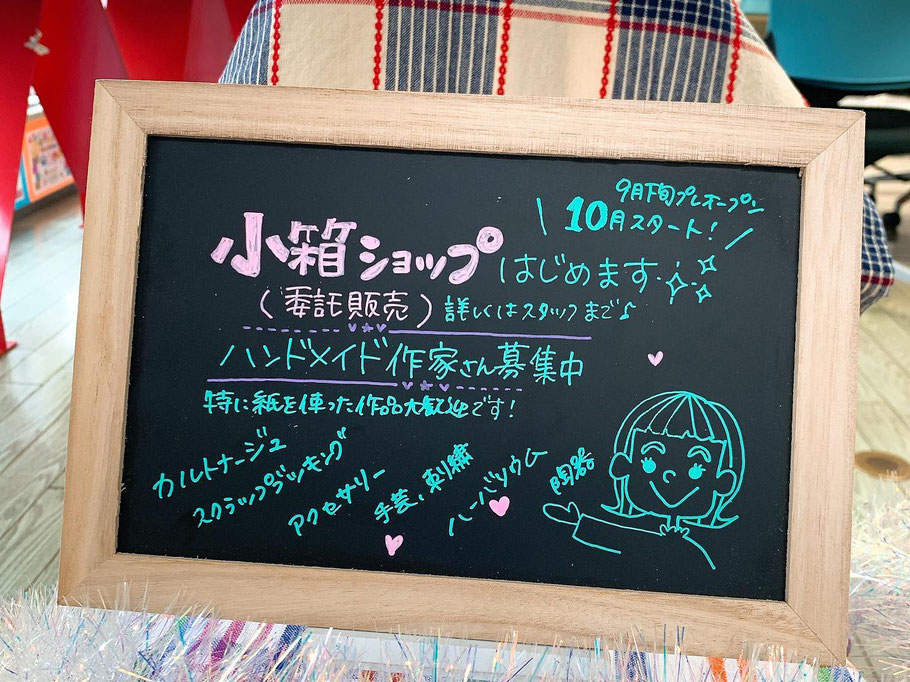 9月下旬プレオープン
10月スタート!
小箱ショップ はじめます
(委託販売) 詳しくはスタッフまで♪
ハンドメイド作家さん募集中
特に紙を使った作品大歓迎です!
カルトナージュ
スクラップブッキング
アクセサリー
手芸、刺繍
ハーバリウム
陶器